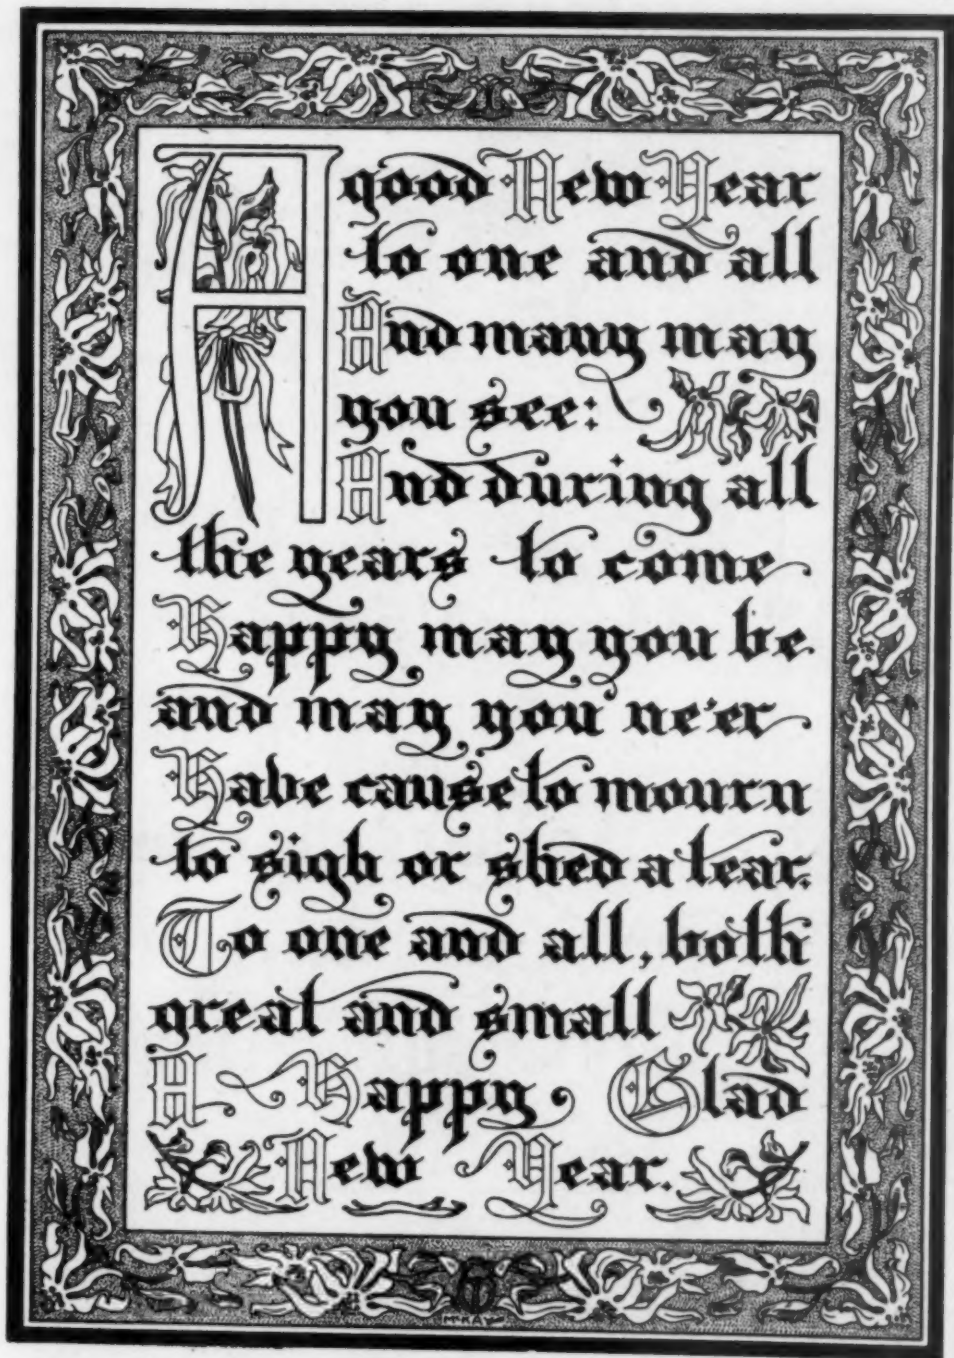 A good New Year
to one and all
And many may
you see:
And during all
the years to come
Happy may you be
and may you ne'er
Have cause to mourn
to sigh or shed a tear.
To one and all, both
great and small
A Happy, Glad
New Year.
McKAY